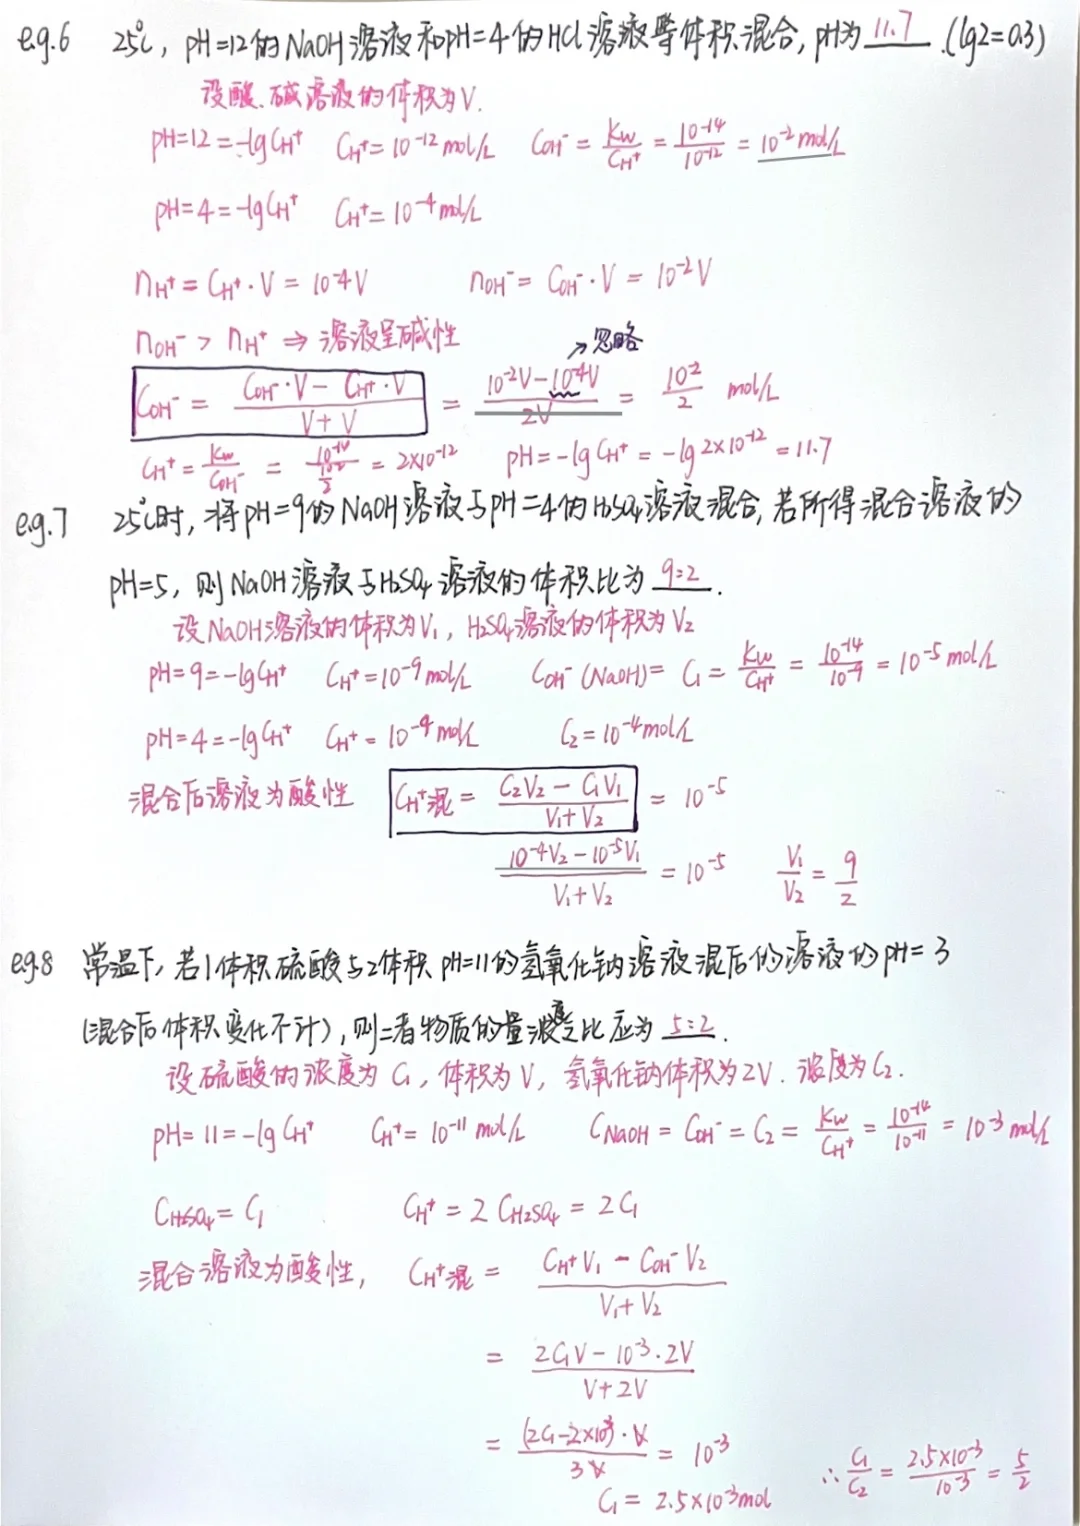 e.g.6 25℃, pH=12的NaOH溶液和pH=4的HCl溶液等体积混合, pH为 11.7 .(lg2=0.3)
设酸、碱溶液的体积为V.
pH=12=-lgCH⁺ CH⁺=10⁻¹²mol/L COH⁻=Kw/CH⁺=10⁻¹⁴/10⁻¹²=10⁻²mol/L
pH=4=-lgCH⁺ CH⁺=10⁻⁴mol/L
nH⁺=CH⁺·V=10⁻⁴V nOH⁻=COH⁻·V=10⁻²V
nOH⁻>nH⁺⇒溶液呈碱性 ↗忽略
COH⁻=(COH⁻·V-CH⁺·V)/(V+V)=(10⁻²V-10⁻⁴V)/2V=10⁻²/2 mol/L
CH⁺=Kw/COH⁻=10⁻¹⁴/(10⁻²/2)=2×10⁻¹² pH=-lgCH⁺=-lg2×10⁻¹²=11.7
e.g.7 25℃时, 将pH=9的NaOH溶液与pH=4的H₂SO₄溶液混合, 若所得混合溶液的
pH=5, 则NaOH溶液与H₂SO₄溶液的体积比为 9:2 .
设NaOH溶液的体积为V₁, H₂SO₄溶液的体积为V₂
pH=9=-lgCH⁺ CH⁺=10⁻⁹mol/L COH⁻(NaOH)=C₁=Kw/CH⁺=10⁻¹⁴/10⁻⁹=10⁻⁵mol/L
pH=4=-lgCH⁺ CH⁺=10⁻⁴mol/L C₂=10⁻⁴mol/L
混合后溶液为酸性 CH⁺混=(C₂V₂-C₁V₁)/(V₁+V₂)=10⁻⁵
(10⁻⁴V₂-10⁻⁵V₁)/(V₁+V₂)=10⁻⁵ V₁/V₂=9/2
e.g.8 常温下, 若1体积硫酸与2体积pH=11的氢氧化钠溶液混后的溶液的pH=3
(混合后体积变化不计), 则二者物质的量浓度之比应为 5:2 .
设硫酸的浓度为C₁, 体积为V, 氢氧化钠体积为2V. 浓度为C₂.
pH=11=-lgCH⁺ CH⁺=10⁻¹¹mol/L CNaOH=COH⁻=C₂=Kw/CH⁺=10⁻¹⁴/10⁻¹¹=10⁻³mol/L
CH₂SO₄=C₁ CH⁺=2CH₂SO₄=2C₁
混合溶液为酸性, CH⁺混=(CH⁺V₁-COH⁻V₂)/(V₁+V₂)
=(2C₁V-10⁻³·2V)/(V+2V)
=(2C₁-2×10⁻³)·V/3V=10⁻³
C₁=2.5×10⁻³mol ∴C₁/C₂=2.5×10⁻³/10⁻³=5/2